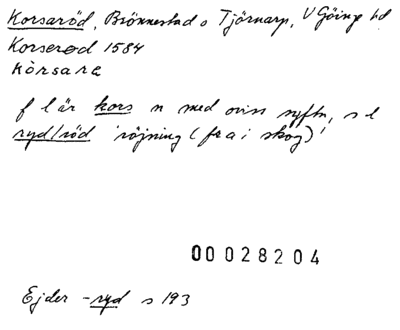 Korsaröd, Brönnestad o Tjörnarp, V Göinge hd
Korserød 1584
kòrsara
f l är kors n med oviss syftn, s l
ryd/röd 'röjning (fr a i skog)'
00028204
Ejder -ryd s 193